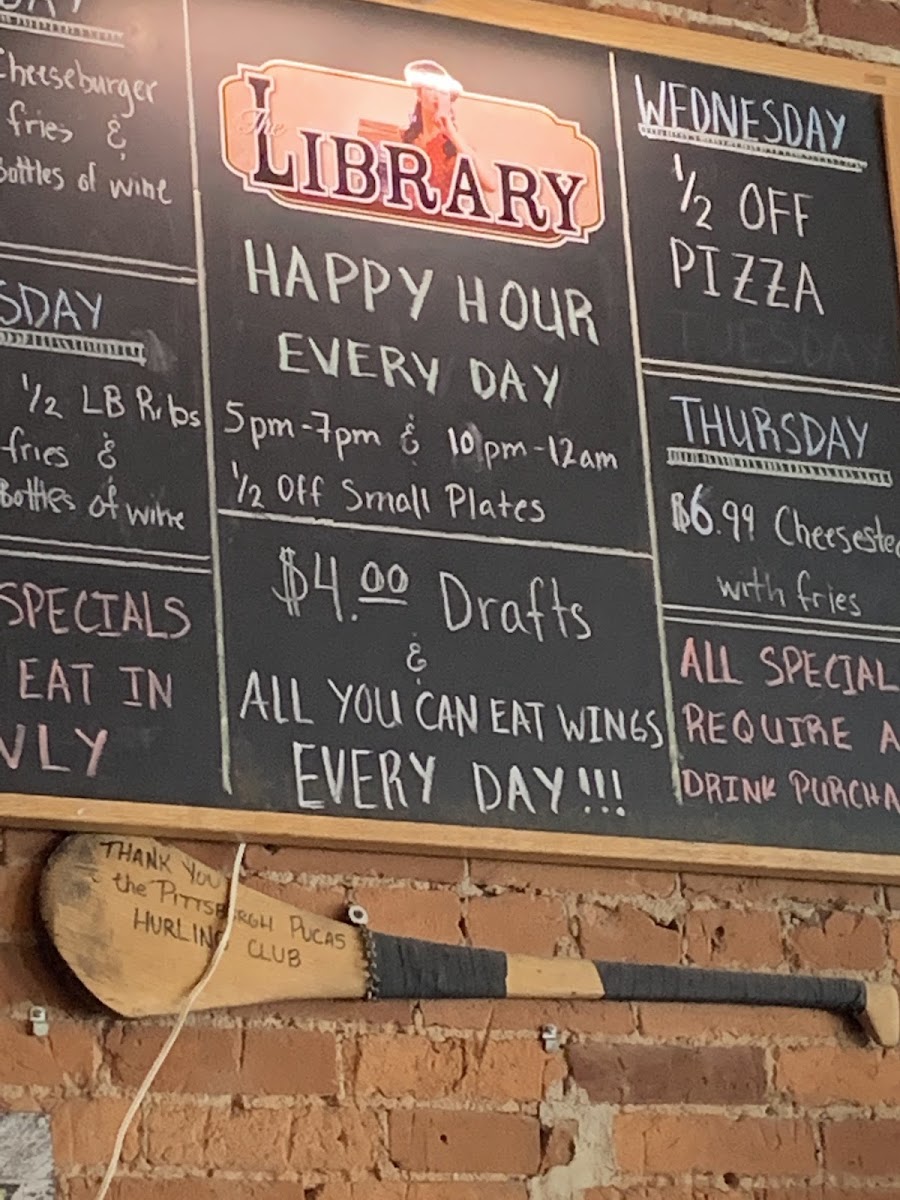 Cheeseburger
fries &
Bottles of wine
SDAY
1/2 LB Ribs
fries &
Bottles of wine
SPECIALS
EAT IN
The
LIBRARY
HAPPY HOUR
EVERY DAY
5pm-7pm & 10pm-12am
1/2 Off Small Plates
$4.00 Drafts
&
ALL YOU CAN EAT WINGS
EVERY DAY!!!
WEDNESDAY
1/2 OFF
PIZZA
TUESDAY
THURSDAY
$6.99 Cheeseste
with fries
ALL SPECIAL
REQUIRE A
DRINK PURCHA
THANK YOU
the PITTSBURGH PUCAS
HURLING CLUB